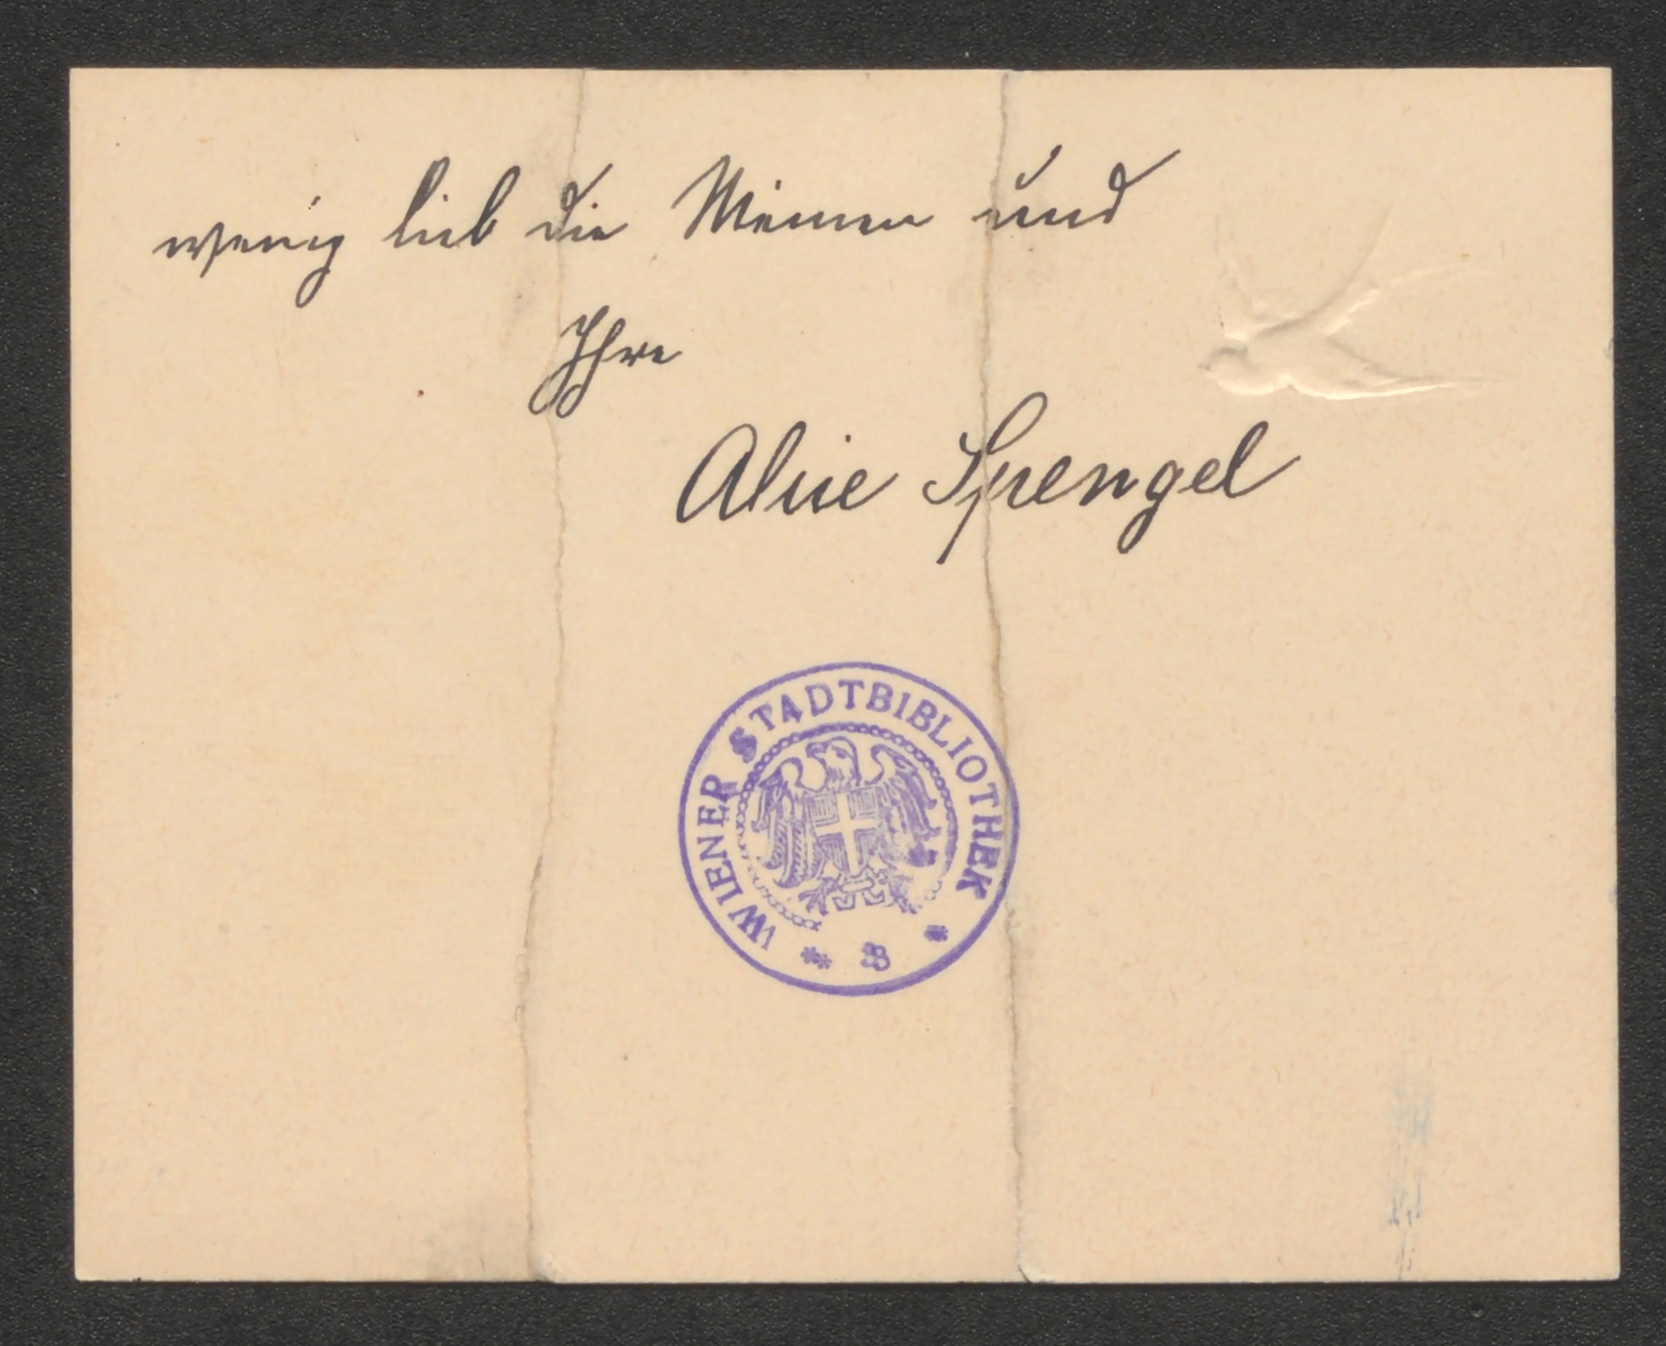 wenig lieb die Meinen und
Ihre
Alice Spengel
WIENER STADTBIBLIOTHEK